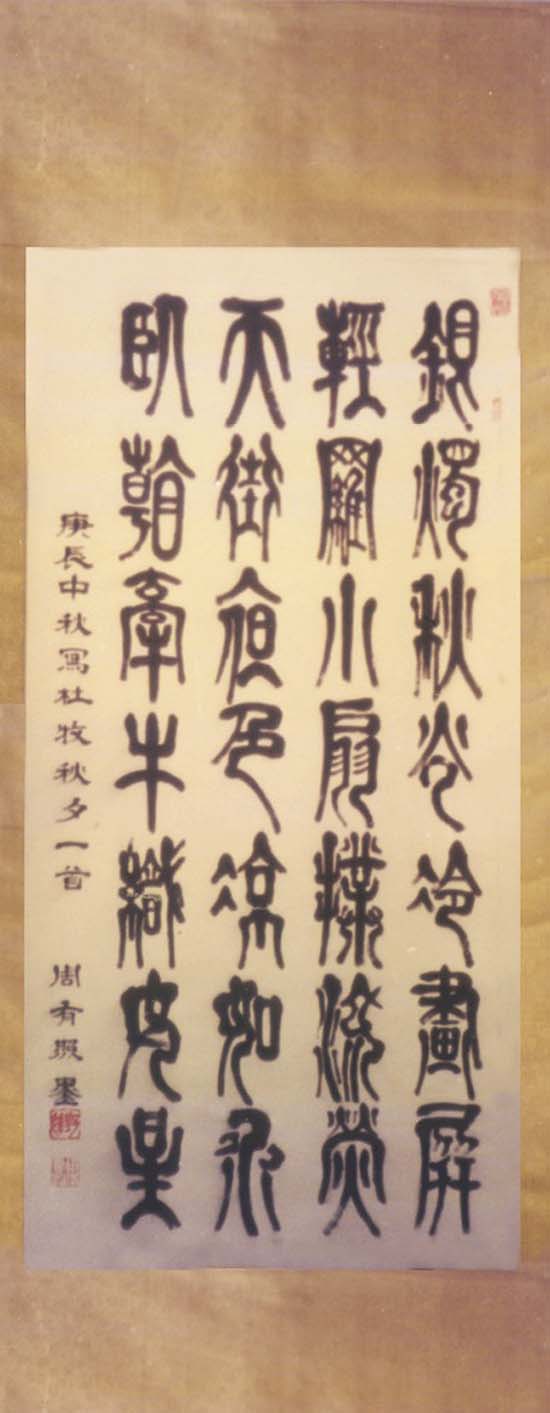 銀燭秋光冷畫屏
輕羅小扇撲流螢
天街夜色涼如水
臥看牽牛織女星
庚辰中秋寫杜牧秋夕一首 周有墨